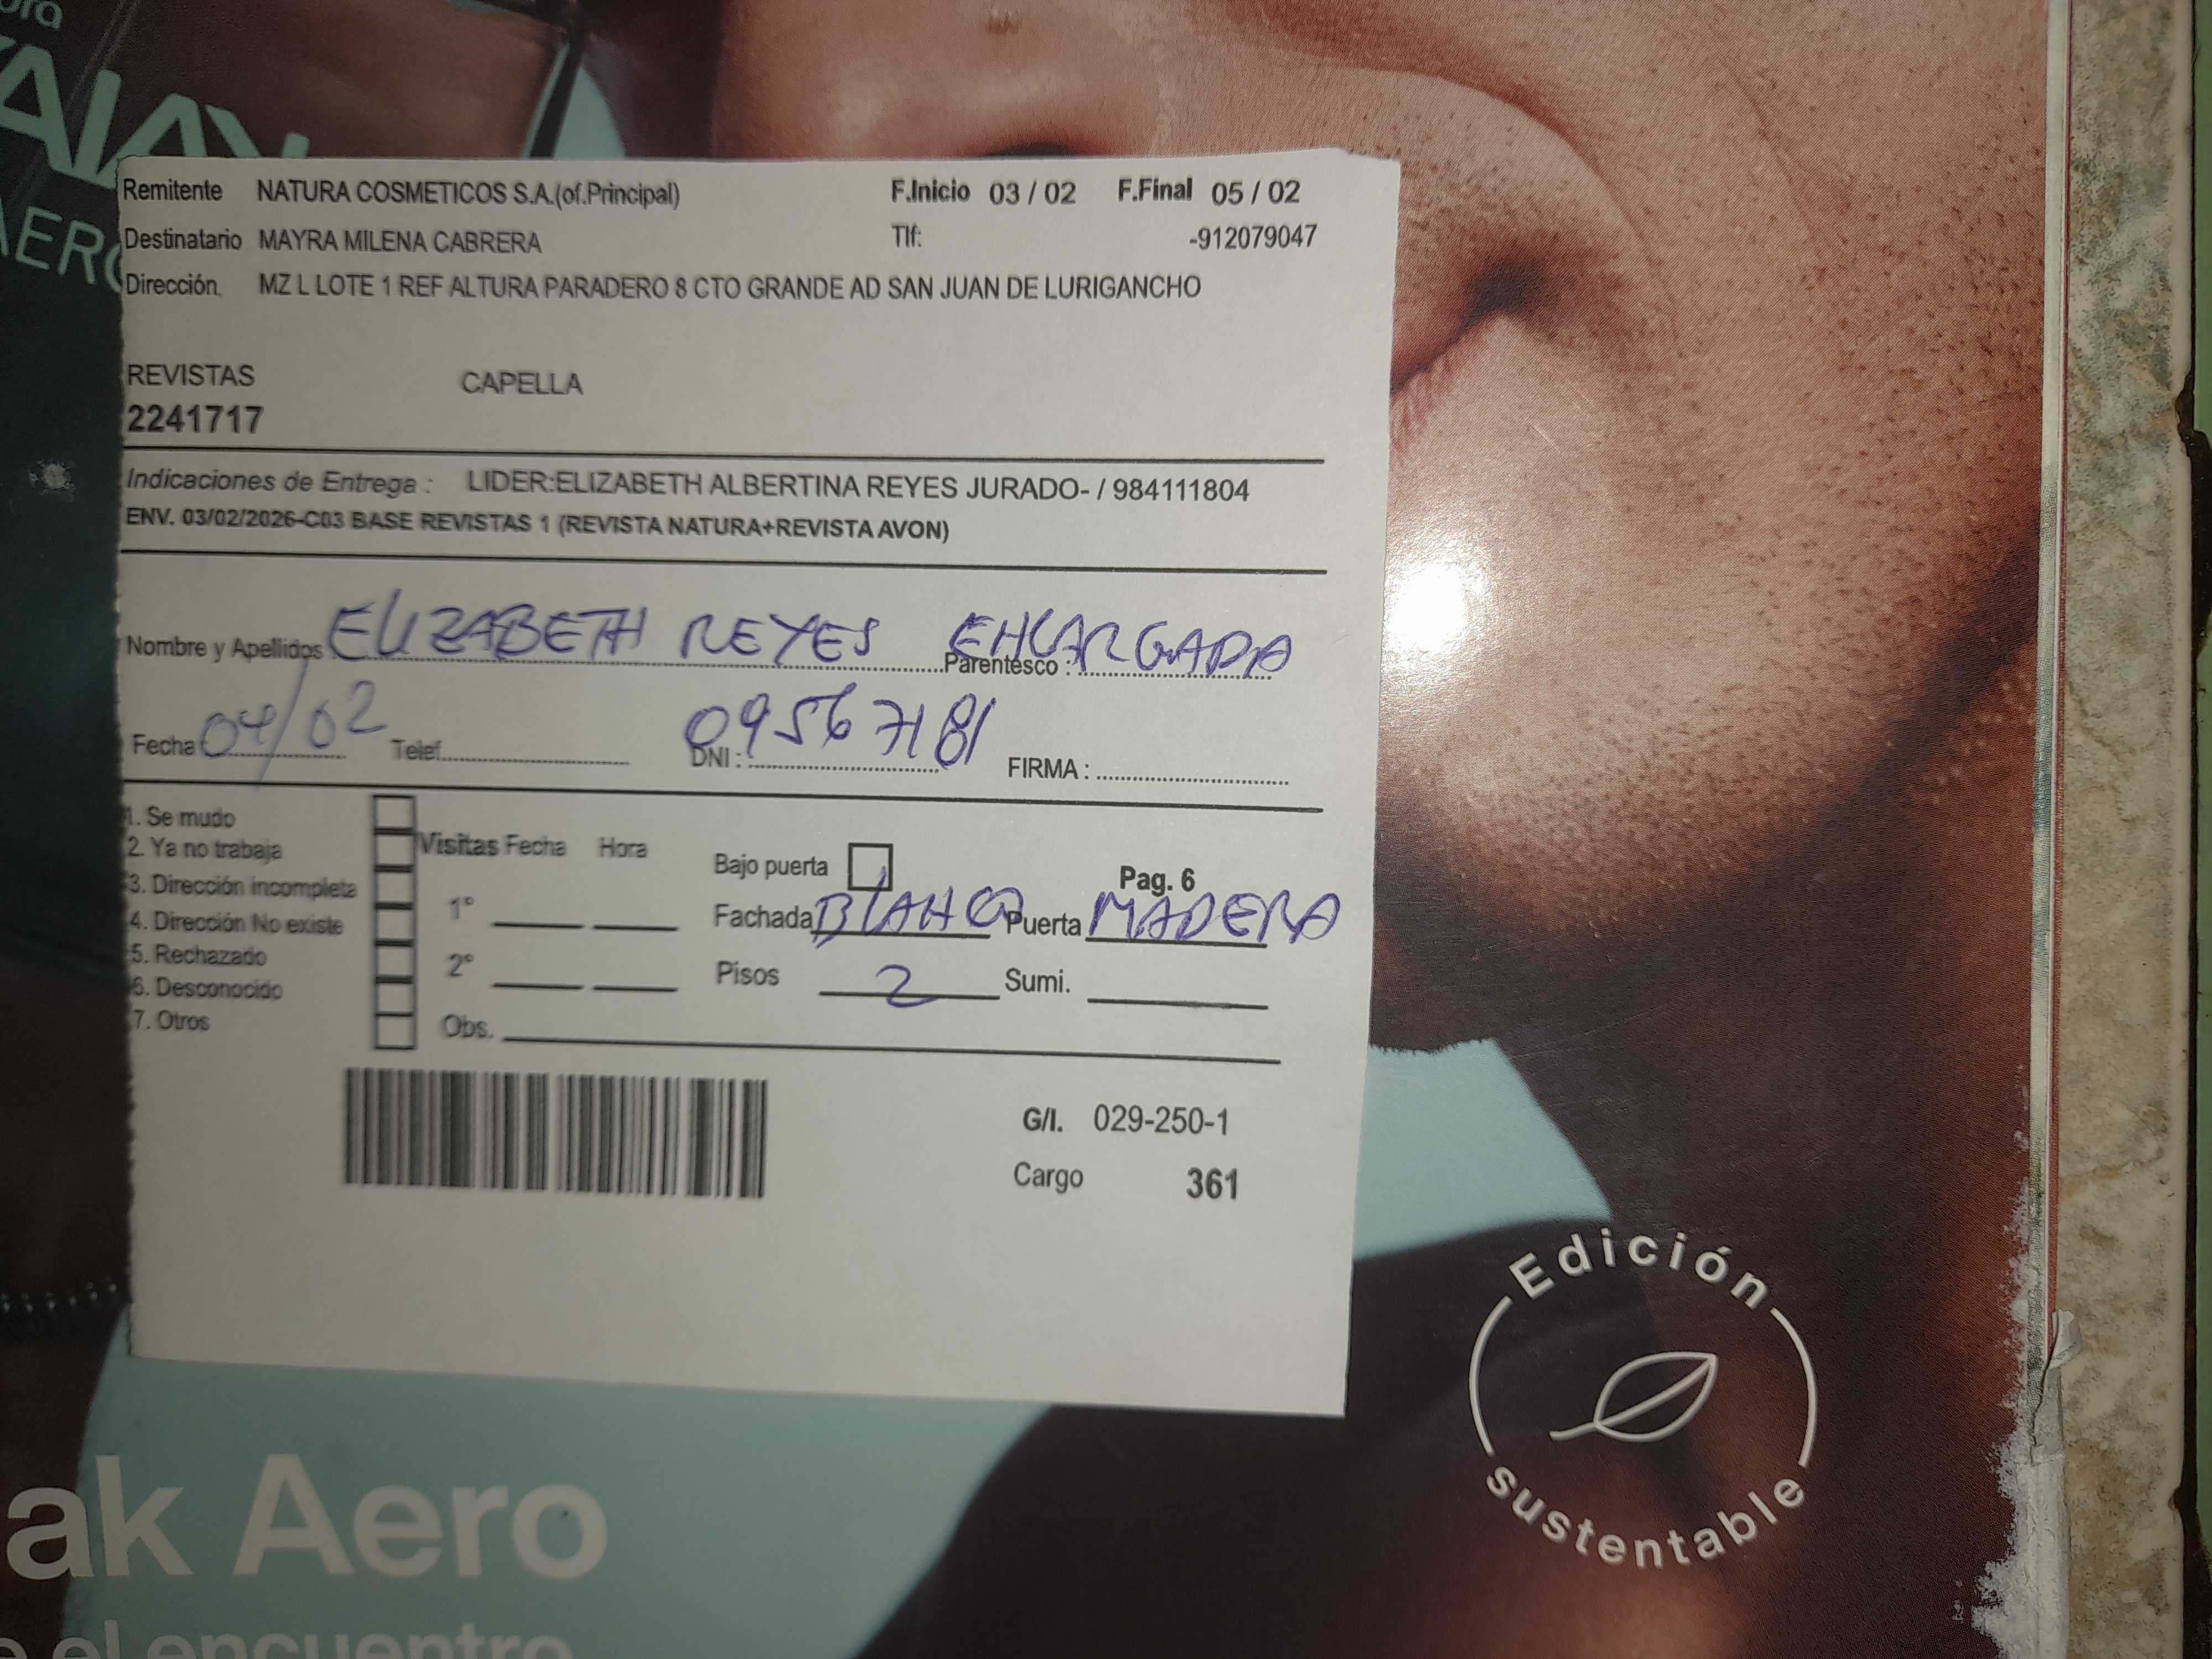 Remitente NATURA COSMETICOS S.A.(of.Principal) F.Inicio 03 / 02 F.Final 05 / 02
Destinatario MAYRA MILENA CABRERA Tlf: -912079047
Dirección. MZ L LOTE 1 REF ALTURA PARADERO 8 CTO GRANDE AD SAN JUAN DE LURIGANCHO
REVISTAS CAPELLA
2241717
Indicaciones de Entrega : LIDER:ELIZABETH ALBERTINA REYES JURADO- / 984111804
ENV. 03/02/2026-C03 BASE REVISTAS 1 (REVISTA NATURA+REVISTA AVON)
Nombre y Apellidos ELIZABETH REYES Parentesco : ENCARGADA
Fecha 04/02 Telef. DNI : 09567181 FIRMA :
1. Se mudo
2. Ya no trabaja
3. Dirección incompleta
4. Dirección No existe
5. Rechazado
6. Desconocido
7. Otros
Visitas Fecha Hora
1°
2°
Obs.
Bajo puerta Pag. 6
Fachada BLANCO Puerta MADERA
Pisos 2 Sumi.
G/I. 029-250-1
Cargo 361
Edición
sustentable
ak Aero
el encuentro